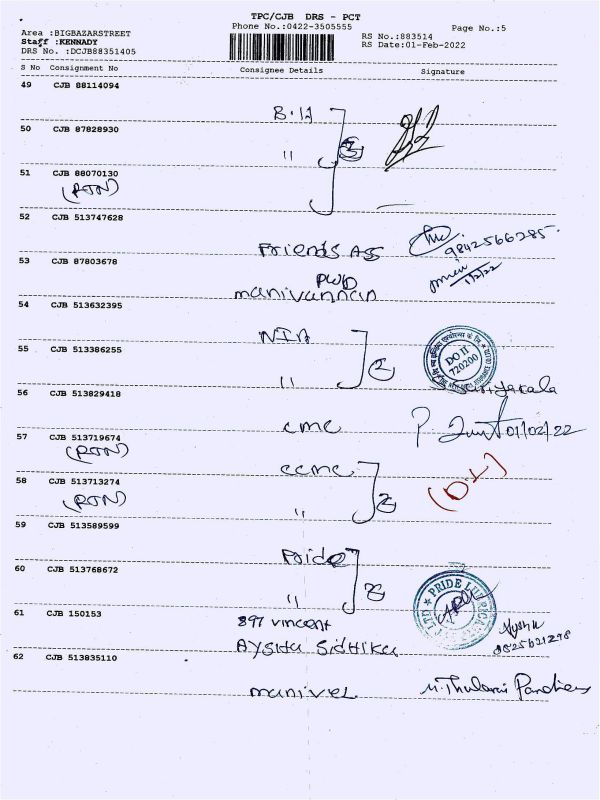 TPC/CJB DRS - PCT
Phone No.:0422-3505555
Page No.:5
Area :BIGBAZARSTREET
RS No.:883514
Staff :KENNADY
RS Date:01-Feb-2022
DRS No. :DCJB88351405
S No Consignment No Consignee Details Signature
49 CJB 88114094
B.17
50 CJB 87828930
"
51 CJB 88070130
(RTN)
52 CJB 513747628
Friends Ass 9842566285
53 CJB 87803678
PWD
manivannan 1/2/22
54 CJB 513632395
NIA
DO II-
720200
55 CJB 513386255
"
2
56 CJB 513829418
cmc 01/02/22
57 CJB 513719674
(RTN)
ccmc
58 CJB 513713274
(RTN)
"
2
59 CJB 513589599
Pride
60 CJB 513768672
"
2
PRIDE
61 CJB 150153
897 vincent
Aysha Sidhika
62 CJB 513835110
manivel